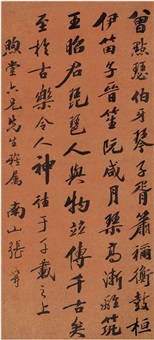 曾點瑟伯牙琴子胥簫禰衡鼓桓
伊笛子晉笙阮咸月琴高漸離筑
王昭君琵琶人與物並傳千古矣
至於古樂令人神往于千載之上
煦堂六兄先生雅屬 南山張